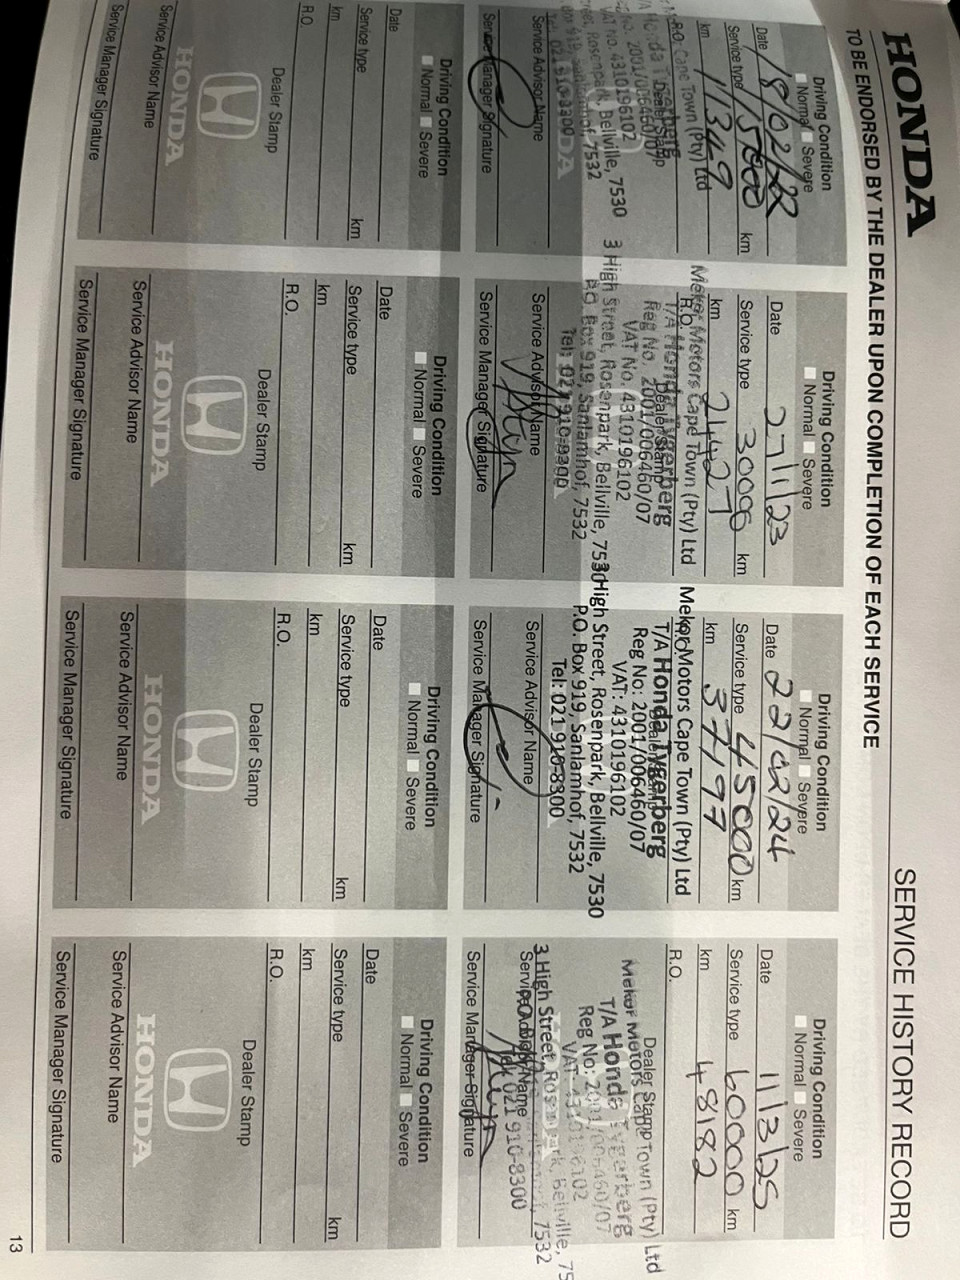 HONDA
SERVICE HISTORY RECORD
TO BE ENDORSED BY THE DEALER UPON COMPLETION OF EACH SERVICE
Driving Condition
Normal Severe
Date 18/02/22
Service type 15000 km
km 11349
R.O.
Cape Town (Pty) Ltd
Dealer Stamp
Honda Tygerberg
2001/006460/07
VAT No. 4310196102
Rosenpark, Bellville, 7530
Box 919, Sanlamhof, 7532
Tel: 021 910-8300
Service Advisor Name
Service Manager Signature
Driving Condition
Normal Severe
Date 27/1/23
Service type 30000 km
km 24427
R.O.
Mekor Motors Cape Town (Pty) Ltd
T/A Honda Tygerberg
Dealer Stamp
Reg No. 2001/006460/07
VAT No. 4310196102
3 High Street, Rosenpark, Bellville, 7530
P.O. Box 919, Sanlamhof, 7532
Tel: 021 910-8300
Service Advisor Name
Service Manager Signature
Driving Condition
Normal Severe
Date 22/02/24
Service type 45000 km
km 37197
R.O.
Mekor Motors Cape Town (Pty) Ltd
T/A Honda Tygerberg
Dealer Stamp
Reg No: 2001/006460/07
VAT: 4310196102
3 High Street, Rosenpark, Bellville, 7530
P.O. Box 919, Sanlamhof, 7532
Tel: 021 910-8300
Service Advisor Name
Service Manager Signature
Driving Condition
Normal Severe
Date 11/3/25
Service type 60000 km
km 48182
R.O.
Dealer Stamp
Mekor Motors Cape Town (Pty) Ltd
T/A Honda Tygerberg
Reg No: 2001/006460/07
VAT: 4310196102
3 High Street, Rosenpark, Bellville, 75
P.O. Box 7532
Tel: 021 910-8300
Service Advisor Name
Service Manager Signature
Driving Condition
Normal Severe
Date
Service type km
km
R.O.
Dealer Stamp
HONDA
Service Advisor Name
Service Manager Signature
Driving Condition
Normal Severe
Date
Service type km
km
R.O.
Dealer Stamp
HONDA
Service Advisor Name
Service Manager Signature
Driving Condition
Normal Severe
Date
Service type km
km
R.O.
Dealer Stamp
HONDA
Service Advisor Name
Service Manager Signature
Driving Condition
Normal Severe
Date
Service type km
km
R.O.
Dealer Stamp
HONDA
Service Advisor Name
Service Manager Signature
13